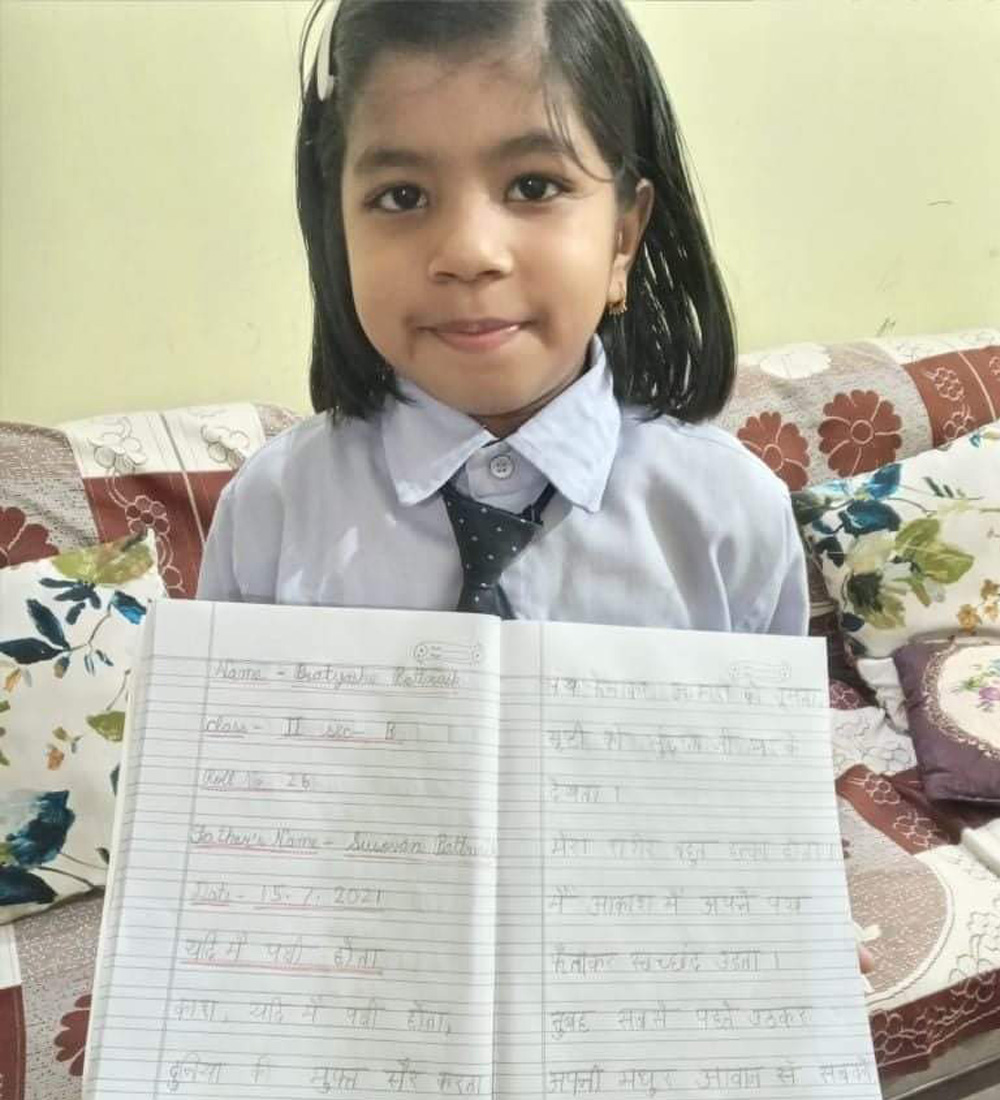 Name - Pratyasha Pattnaik
Class - II sec - B
Roll No. 26
Father's Name - Susovan
Date - 15.7.2021
यदि मैं पक्षी होता
काश, यदि मैं पक्षी होता,
दुनिया की मुफ्त सैर करता
देखता ।
मेरा शरीर बहुत हल्का होता
मैं आकाश में अपने पंख
फैलाकर स्वच्छंद उड़ता ।
सुबह सबसे पहले उठकर
अपनी मधुर आवाज से सबको